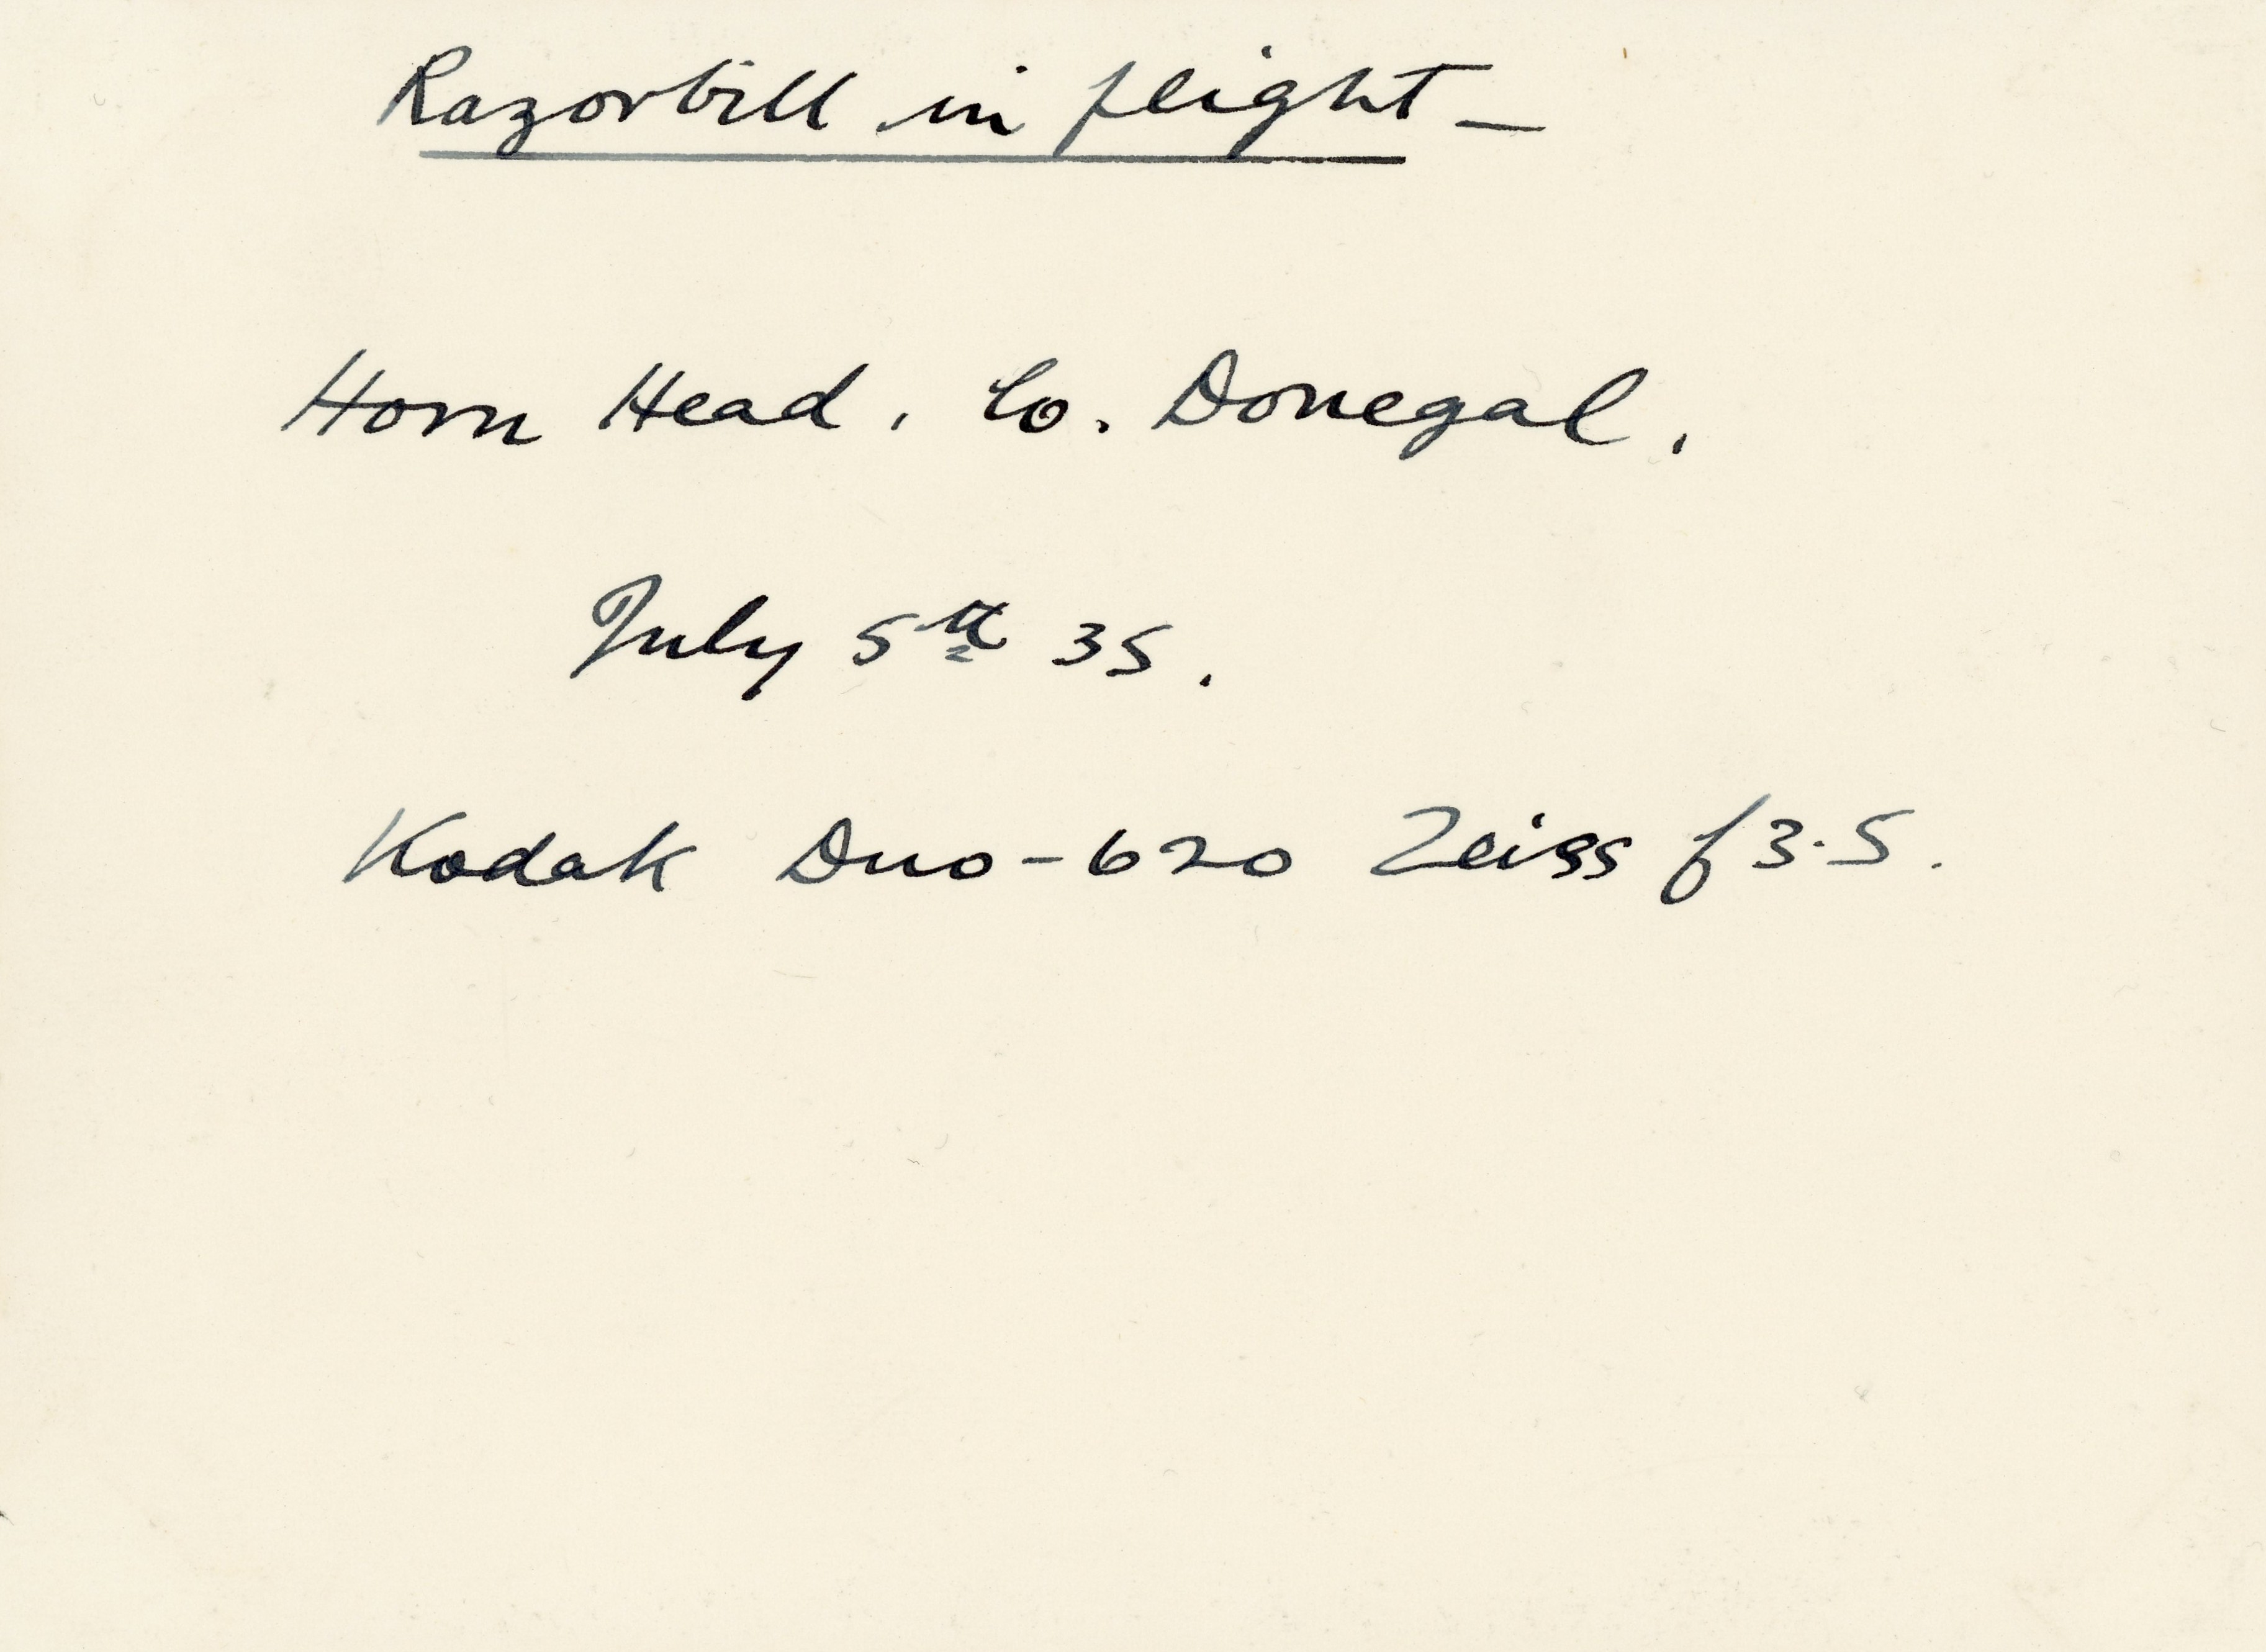 Razorbill in flight —
Horn Head, Co. Donegal.
July 5th 35.
Kodak Duo-620 Zeiss f3.5.